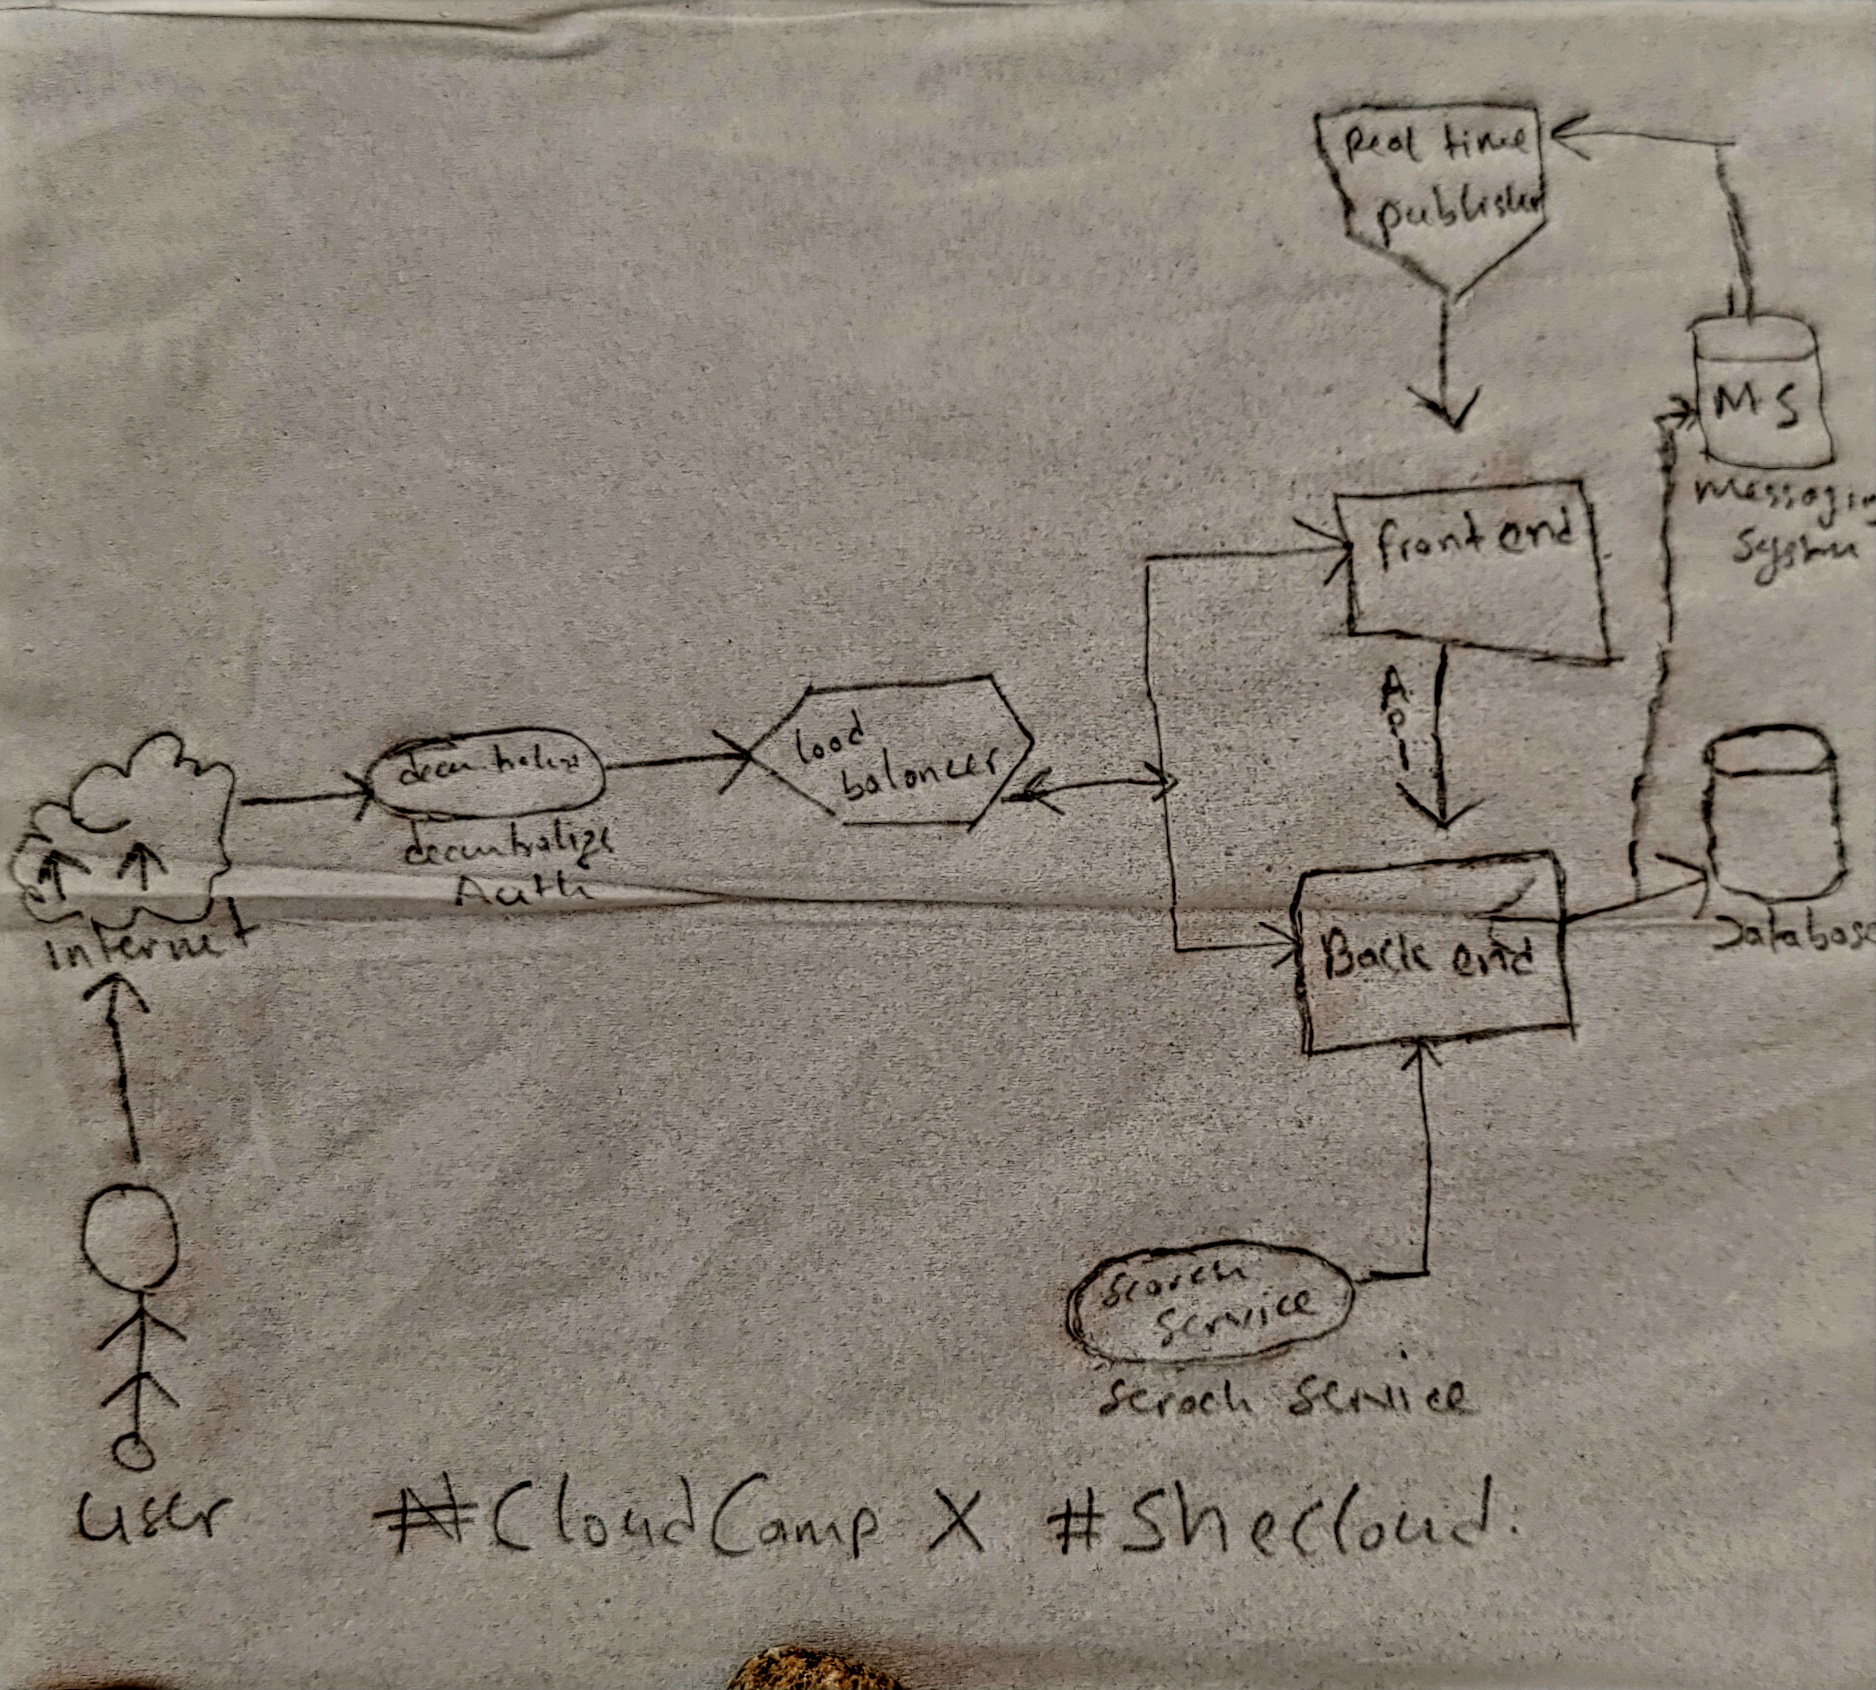 Real time
publisher
M S
Messaging
System
front end
API
load
balancer
decentralize
decentralize
Auth
Internet
Back end
Database
Search
Service
Serach Service
User
#CloudCamp X #SheCloud.